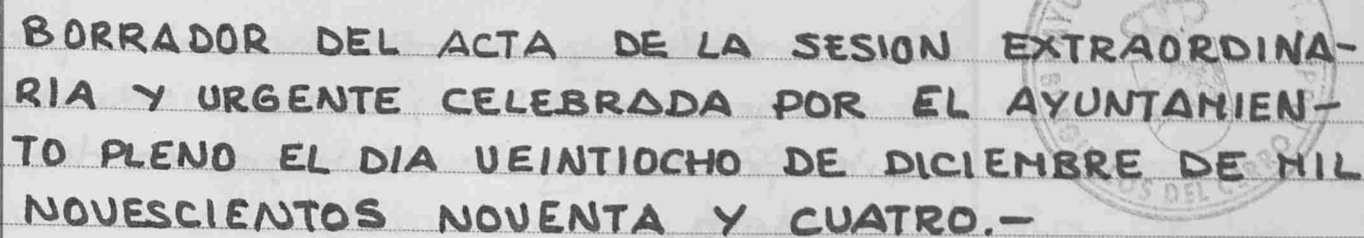 BORRADOR DEL ACTA DE LA SESION EXTRAORDINA-
RIA Y URGENTE CELEBRADA POR EL AYUNTAMIEN-
TO PLENO EL DIA VEINTIOCHO DE DICIEMBRE DE MIL
NOVESCIENTOS NOVENTA Y CUATRO.-